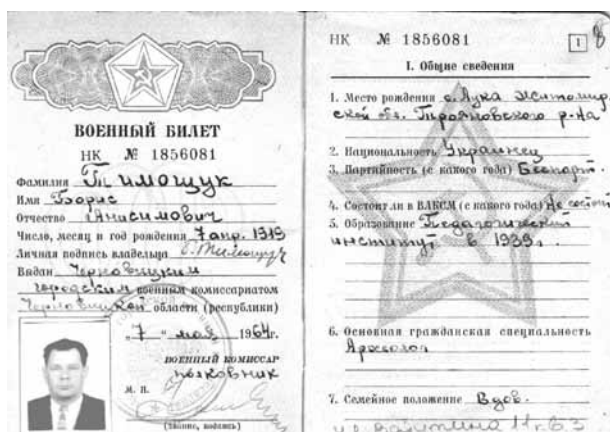 ВОЕННЫЙ БИЛЕТ
НК № 1856081
Фамилия Тимощук
Имя Борис
Отчество Анисимович
Число, месяц и год рождения 7 апр. 1919
Личная подпись владельца
Выдан Черновицким
городским военным комиссариатом
Черновицкой области (республики)
„7“ мая 1964г.
ВОЕННЫЙ КОМИССАР
полковник
М. П.
(звание, подпись)
НК № 1856081 1 8
I. Общие сведения
1. Место рождения с. Лука Житомир
ской обл. Трояновского р-на
2. Национальность Украинец
3. Партийность (с какого года) Беспарт.
4. Состоит ли в ВЛКСМ (с какого года) Не состоит
5. Образование Педагогический
институт в 1939г.
6. Основная гражданская специальность
Археолог
7. Семейное положение Вдов.
11 к. 63